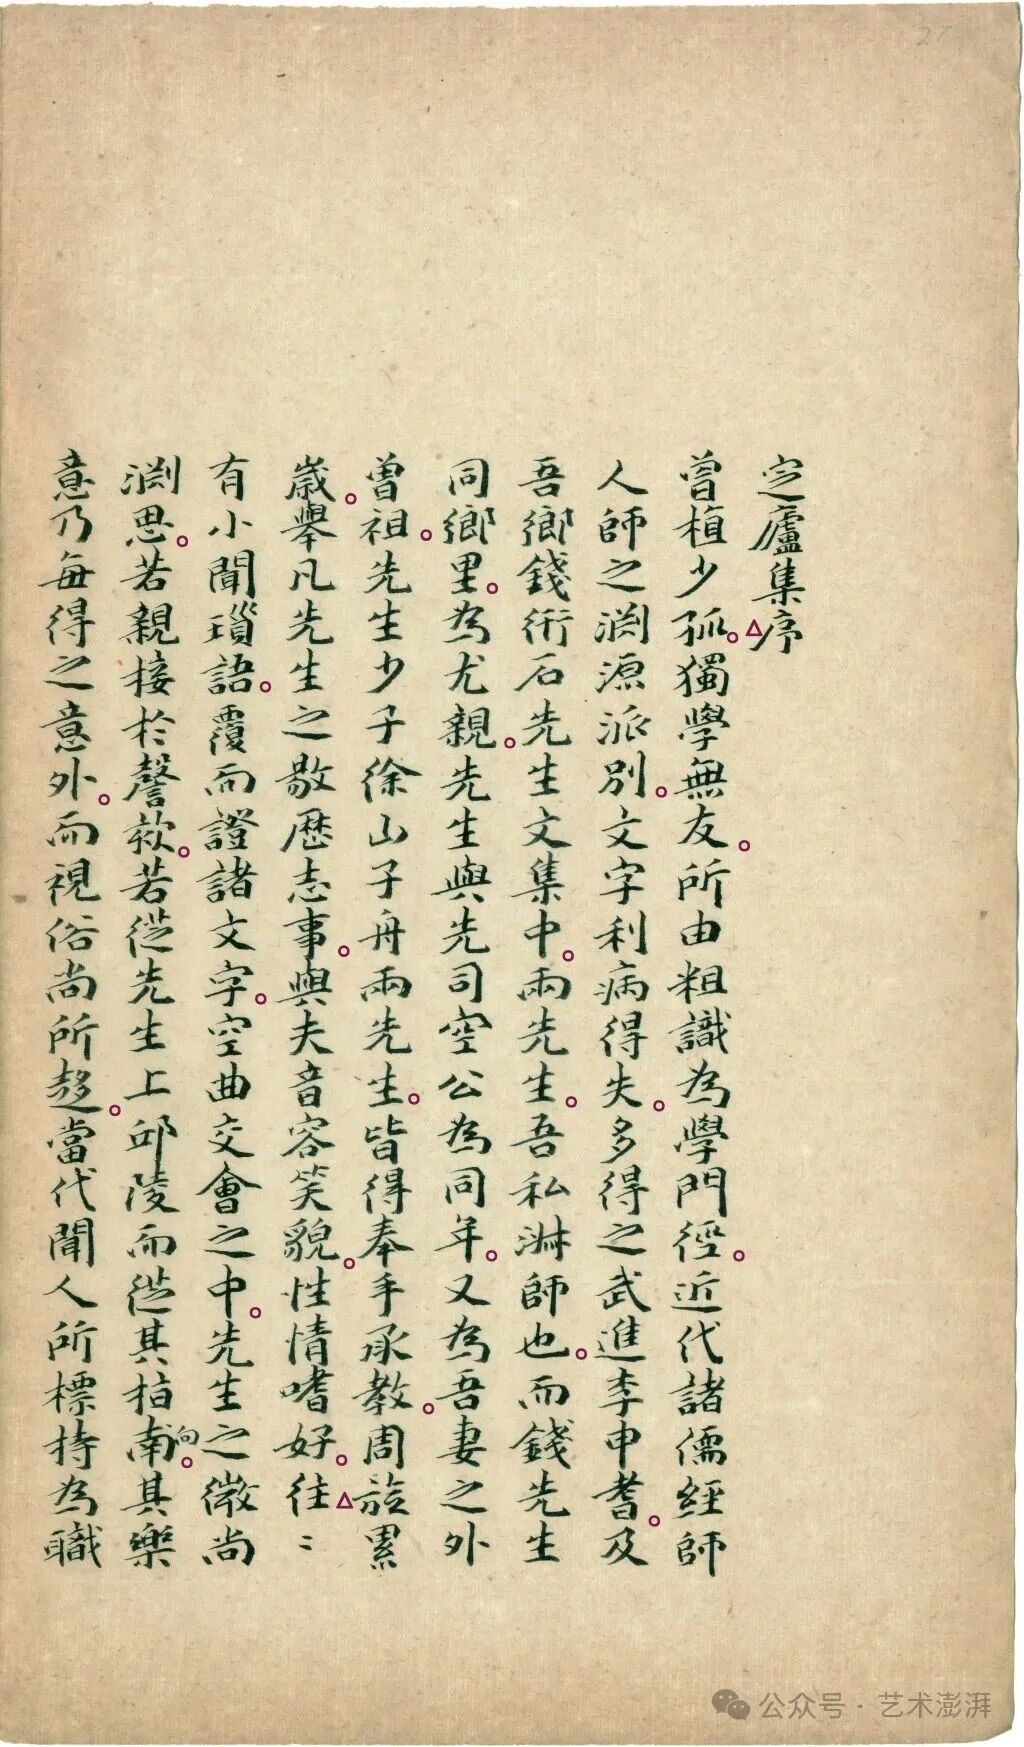 27
定廬集序
曾植少孤。獨學無友。所由粗識為學門徑。近代諸儒經師
人師之淵源派別。文字利病得失。多得之武進李申耆。及
吾鄉錢衎石先生文集中。兩先生。吾私淋師也。而錢先生
同鄉里。為尤親。先生與先司空公為同年。又為吾妻之外
曾祖。先生少子徐山子舟兩先生。皆得奉手承教。周旋累
歲。舉凡先生之敭歷志事。與夫音容笑貌。性情嗜好。往〻
有小聞瑣語。覆而證諸文字。空曲交會之中。先生之微尚
淵思。若親接於謦欬。若從先生上邱陵而從其指南向。其樂
意乃每得之意外。而視俗尚所趍。當代聞人所標持為職
公众号·艺术澎湃